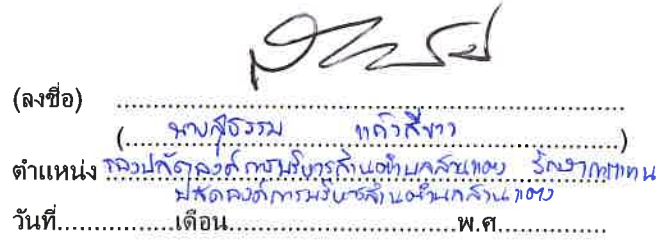 (ลงชื่อ)
(นายสุธรรม แก้วสีขาว)
ตำแหน่ง รองปลัดองค์การบริหารส่วนตำบลลานแตง รักษาการแทน
ปลัดองค์การบริหารส่วนตำบล
วันที่..............เดือน..............................พ.ศ................